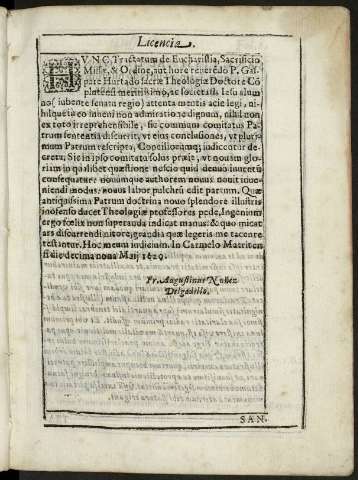 Licencia.
HVNC Tractatum de Eucharistia, Sacrificio
Missæ, & Ordine, authore reverẽdo P. Gas-
pare Hurtado sacræ Theologiæ Doctore Cõ
plutensi meritissimo, ac societatis Iesu alum
no (iubente senatu regio) attenta mentis acie legi, ni-
hilque in eo inueni non admiratione dignum, nihil non
ex toto irreprehensibile, sic communi comitatus Pa-
trum sententia discurrit, vt eius conclusiones, vt pluri-
mum Patrum rescripta, Conciliorumq; indicentur de-
creta. Sic in ipso comitatu solus præit, vt nouam glo-
riam in qualibet quæstione nescio quid denuo inuectũ
consequatur: nouumque authorem nouus nouit inuo-
niendi modus, nouus labor pulchrũ edit partum. Quæ
antiquissima Patrum doctrina nouo splendore illustris
inofenso ducet Theologiæ professores pede, Ingenium
ergo fœlix non superanda indicat manus: & quo micat
ars discurrendi nitore, grandia quæ legeris me tacente
testantur. Hoc meum iudicium. In Carmelo Matriten
si die decima noua Maij 1629.
Fr. Augustinus Nuñez
Delgadillo.
SAN.